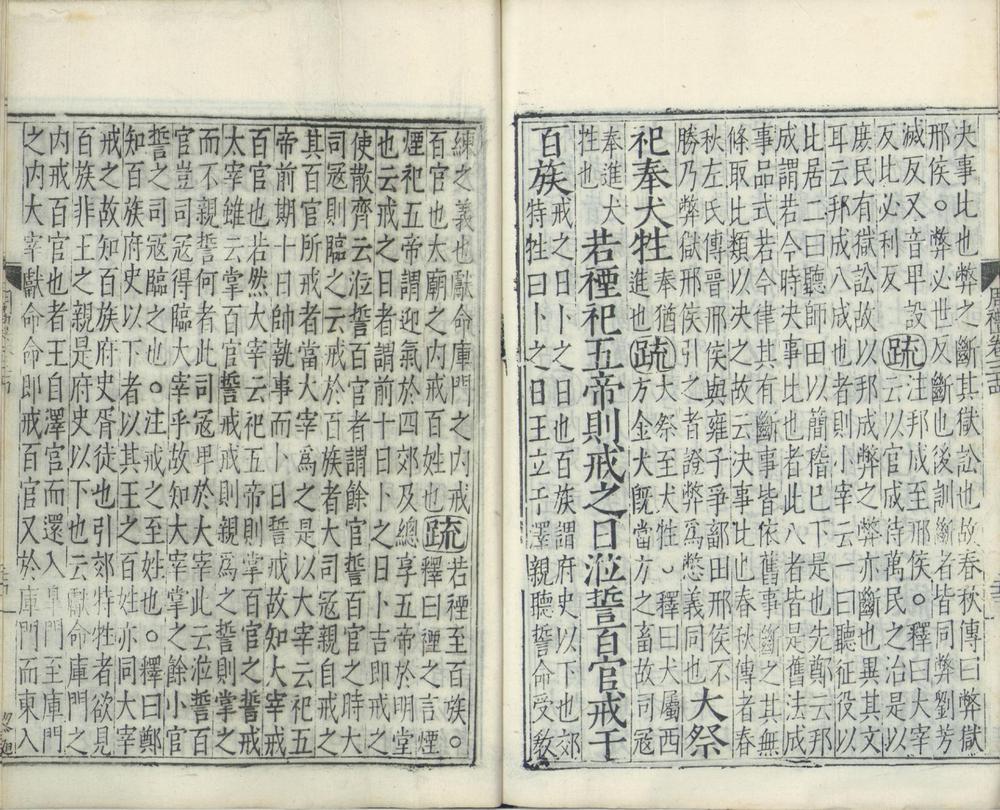 決事比也弊之斷其獄訟也故春秋傳曰弊獄
邢侯。弊必世反斷也後訓斷者皆同弊劉芳
滅反又音毘設疏注邦成至邢侯。釋曰大宰
反比必利反云以官成待萬民之治是以
庶民有獄訟故以邦成弊之弊亦斷也異其文
耳云邦成八成也者則小宰云一曰聽征役以
比居二曰聽師田以簡稽已下是也先鄭云邦
成謂若今時決事比也者此八者皆是舊法成
事品式若今律其有斷事皆依舊事斷之其無
條取比類以決之故云決事比也春秋傳者春
秋左氏傳晉邢侯與雍子爭鄐田邢侯不
勝乃弊獄邢侯引之者證弊爲憋義同也大祭
祀奉犬牲奉猶進也疏大祭至犬牲。釋曰犬屬西方金犬旣當方之畜故司冦
奉進犬牲也
若禋祀五帝則戒之日涖誓百官戒于
百族戒之日卜之日也百族謂府史以下也郊特牲曰卜之日王立于澤親聽誓命受教
練之義也獻命庫門之内戒
百官也大廟之内戒百姓也疏若禋至百族。釋曰禋之言煙
煙祀五帝謂迎氣於四郊及總享五帝於明堂
也云戒之日者謂前十日卜之日卜吉即戒之
使散齊云涖誓百官者謂餘官誓百官之時大
司冦則臨之云戒於百族者大司冦親自戒之
其百官所戒者當大宰爲之是以大宰云祀五
帝前期十日帥執事而卜日誓戒故知大宰戒
百官也若然大宰云祀五帝則掌百官之誓戒
大宰雖云掌百官誓戒戒則親爲之誓則掌之
而不親誓何者此司冦卑於大宰此云涖誓百
官豈司冦得臨大宰乎故知大宰掌之餘小官
誓之司冦臨之也。注戒之至姓也。釋曰鄭
知百族府史以下者以其王之百姓亦同大宰
戒之故知百族府史胥徒也引郊特牲者欲見
百族非王之親是府史以下也云獻命庫門之
内戒百官也者王自澤宫而還入皐門至庫門
之内大宰獻命命即戒百官又於庫門而東入